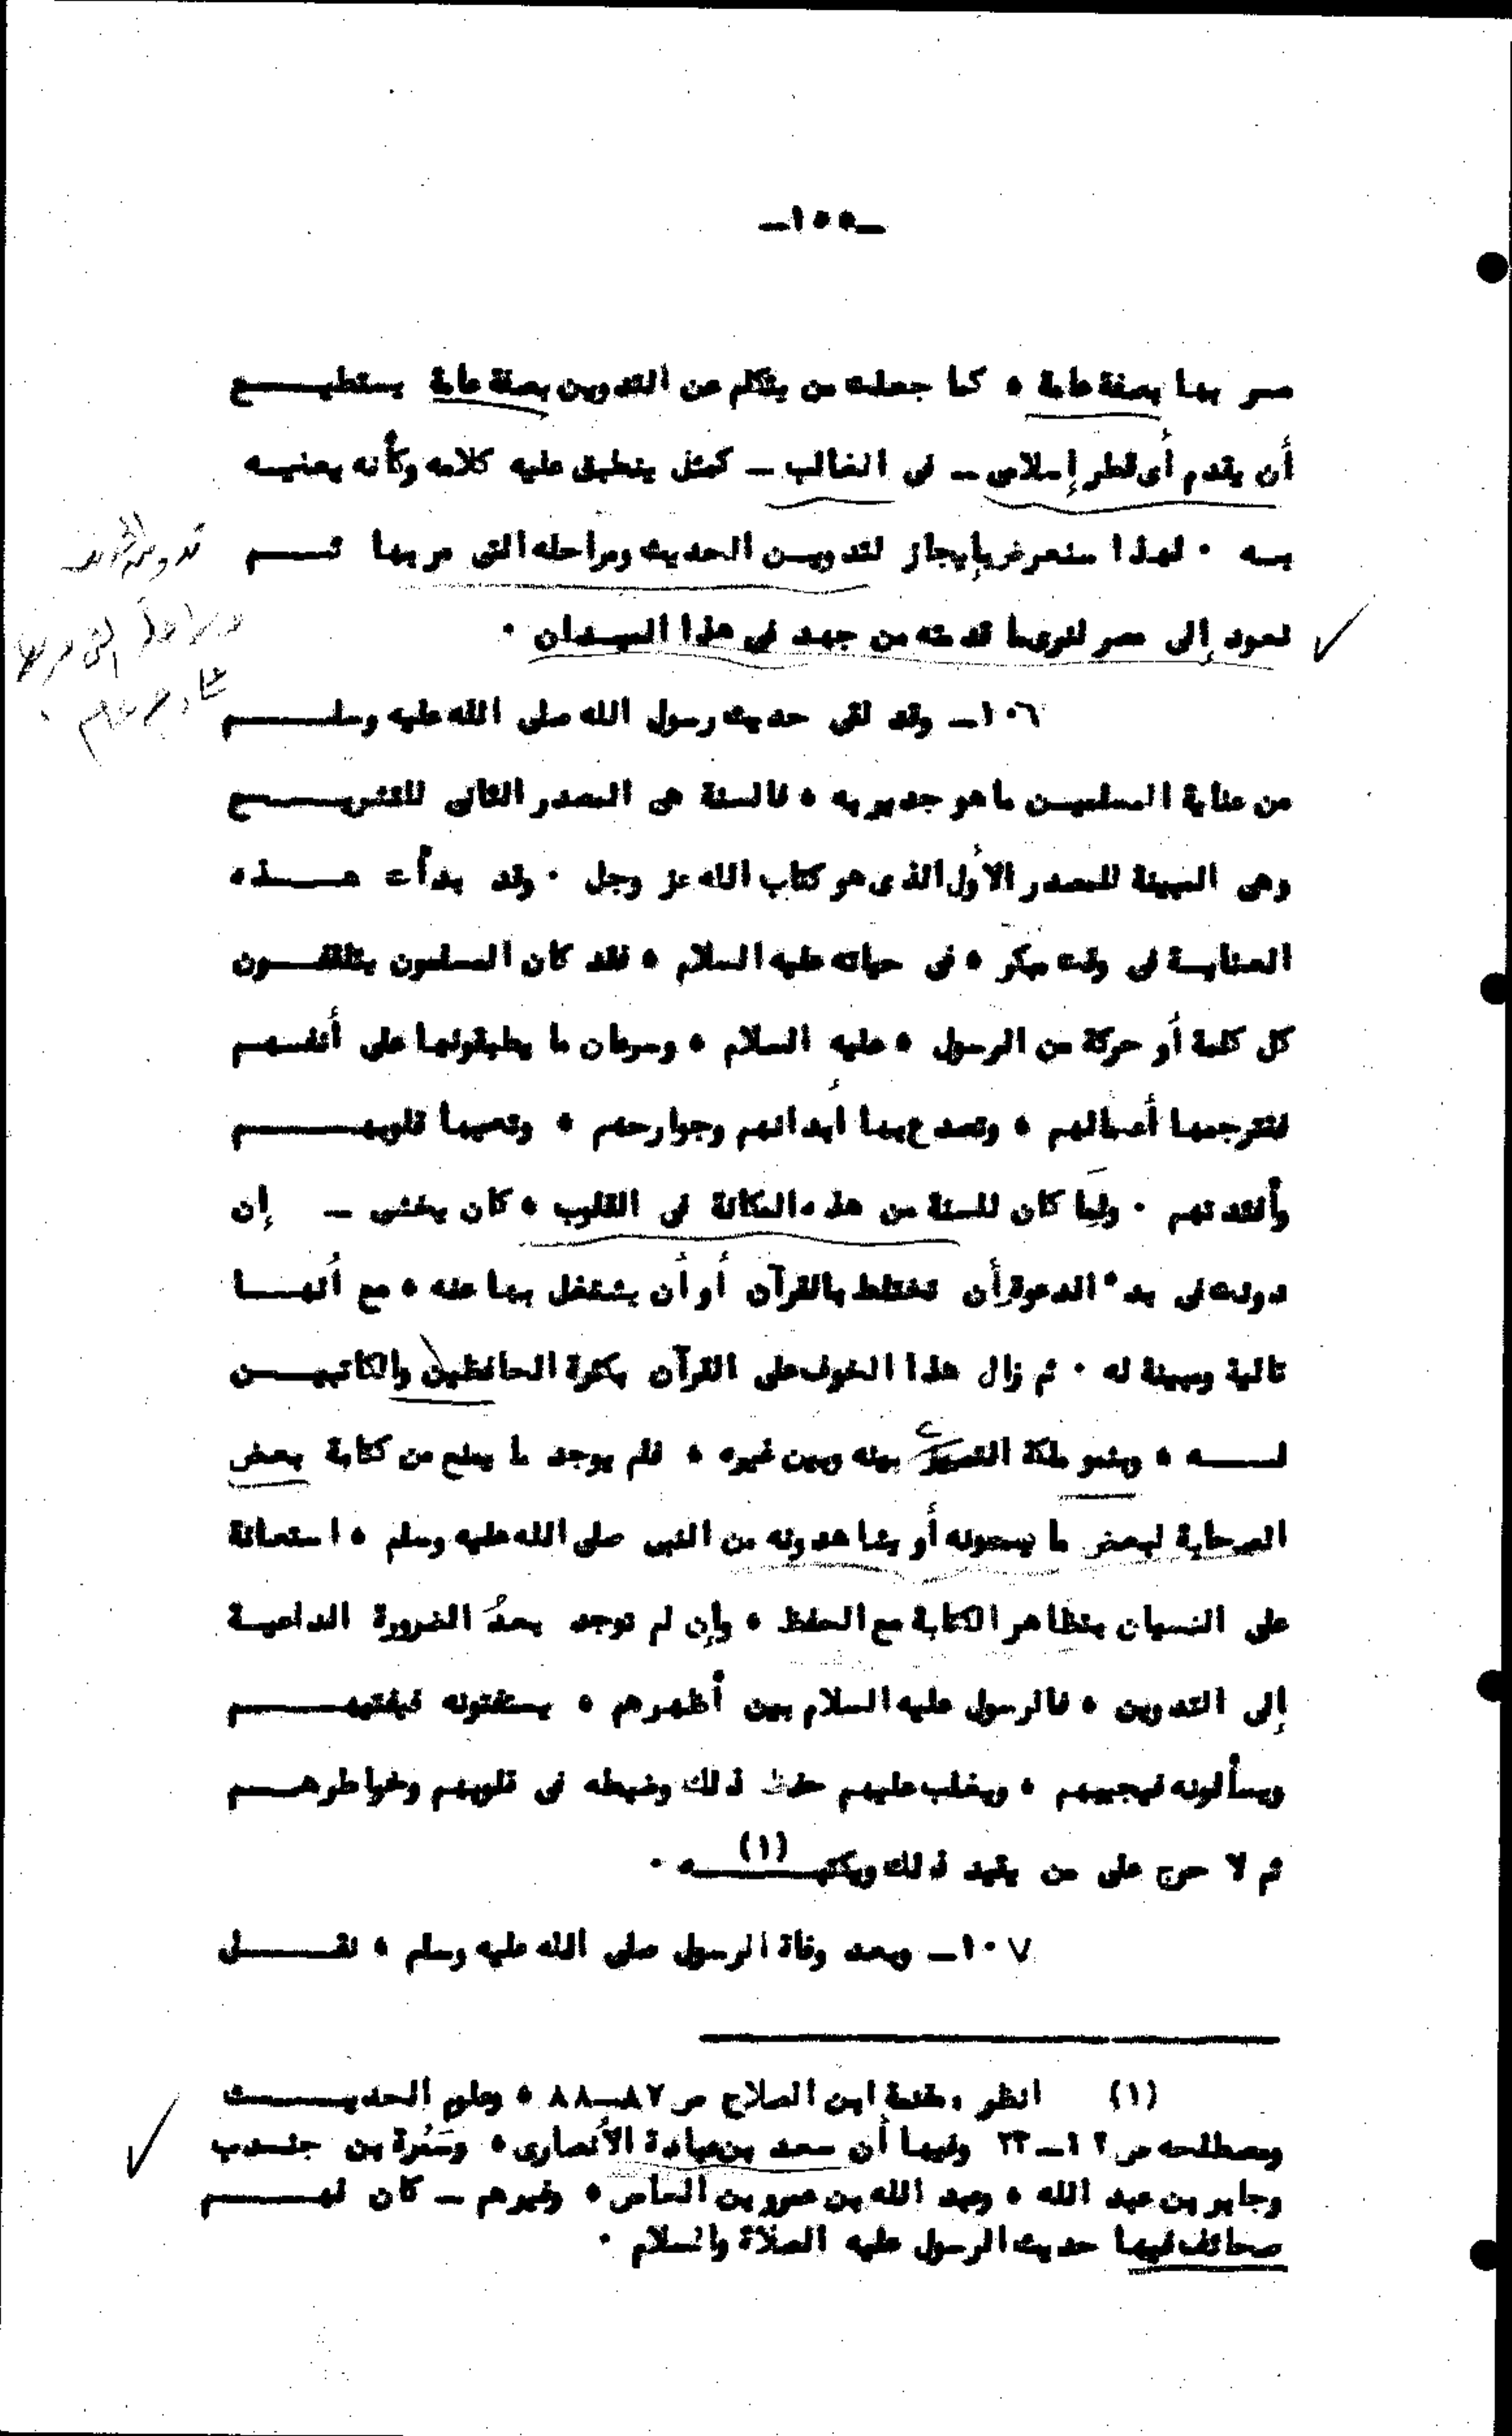 ـ١٥٥ـ
مصر بها بصفة عامة ، كما جعلت من يتكلم عن التدوين بصفة عامة يستطيـــع
أن يقدم أى قطر إسلامى ــ فى الغالب ــ كمثل ينطبق عليه كلامه وكأنه يعنيــه
بــه ٠ لهذا سنعرض بإيجاز لتدويــن الحديث ومراحله التى مر بها ثـــم
نعود إلى مصر لنرى ما قدمته من جهد فى هذا الميــدان ٠
تدوين
ومراحله التى مر بها
١٠٦ــ وقد لقى حديث رسول الله صلى الله عليه وسلــــم
من عناية المسلميــن ما هو جدير به ، فالسنة هى المصدر الثانى للتشريـــع
وهى المبينة للمصدر الأول الذى هو كتاب الله عز وجل ٠ وقد بدأت هــــذه
العنايــة فى وقت مبكر ، فى حياته عليه السلام ، فقد كان المسلمون يتلقفــون
كل كلمة أو حركة من الرسول ، عليه السلام ، وسرعان ما يطبقونها على أنفسهــم
فتترجمها أعمالهم ، وتصدع بها أبدانهم وجوارحهم ، وتعيها قلوبهــــم
وأفئدتهم ٠ ولِمَا كان للسنة من هذه المكانة فى القلوب ، كان يخشى ــ إن
دونت فى بدء الدعوة أن تختلط بالقرآن أو أن يشتغل بها عنه ، مع أنهـــا
تالية ومبينة له ٠ ثم زال هذا الخوف على القرآن بكثرة الحافظين والكاتبيـــن
لــــه ، وبنمو ملكة التمييز بينه وبين غيره ، فلم يوجد ما يمنع من كتابة بعض
الصحابة لبعض ما يسمعونه أو يشاهدونه من النبى صلى الله عليه وسلم ، استعانة
على النسيان بتظاهر الكتابة مع الحفظ ، وإن لم توجد بعدُ الضرورة الداعيــة
إلى التدوين ، فالرسول عليه السلام بين أظهرهم ، يستفتونه فيفتيهــــم
ويسألونه فيجيبهم ، ويغلب عليهم حفظ ذلك وضبطه فى قلوبهم وخواطرهـــم
ثم لا حرج على من يقيد ذلك ويكتبـــه (١) ٠
١٠٧ــ وبعد وفاة الرسول صلى الله عليه وسلم ، نقــــل
(١) انظر : مقدمة ابن الصلاح ص ٨٧ــ٨٨ ، وعلوم الحديــــث
ومصطلحه ص ١٢ــ٢٣ وفيها أن سعد بن عبادة الأنصارى ، وسَمُرة بن جنــدب
وجابر بن عبد الله ، وعبد الله بن عمرو بن العاص ، وغيرهم ــ كان لهــــم
صحائف فيها حديث الرسول عليه الصلاة والسلام ٠